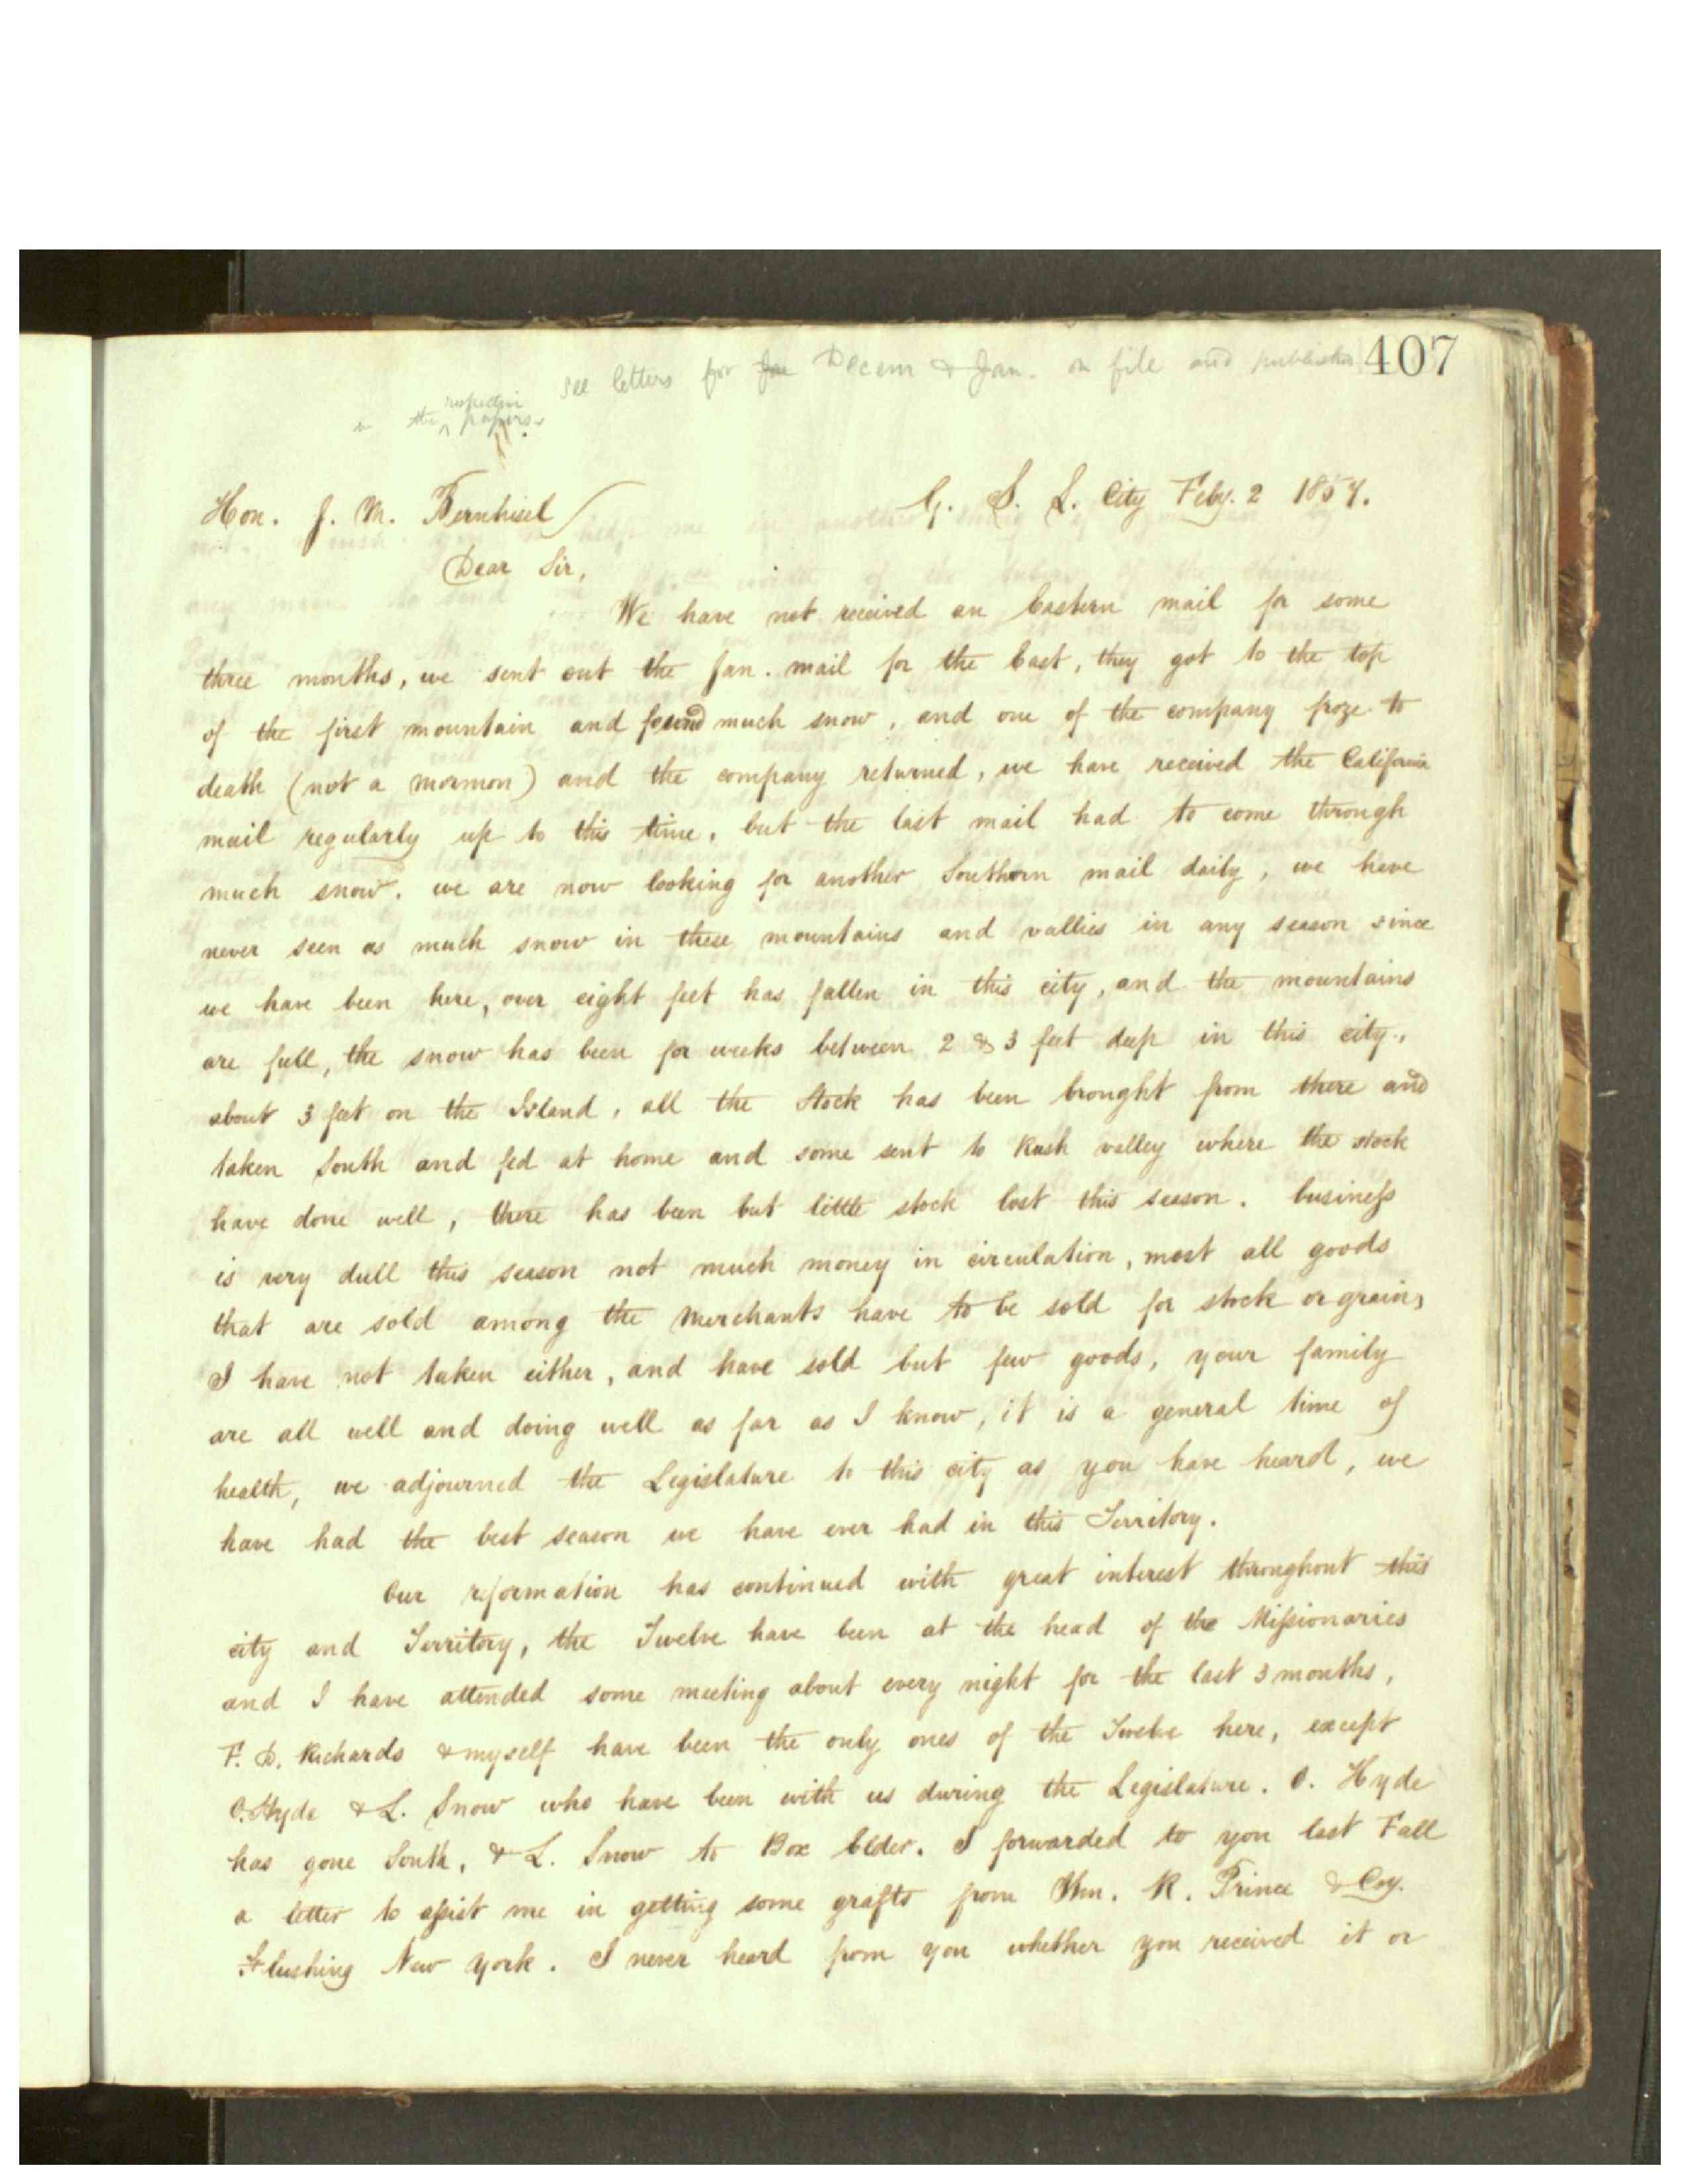 407
see letters for Jan Decem & Jan. on file and published
in the respective papers.
Hon. J. M. Bernhisel
G. S. L. City Feby. 2 1857.
Dear Sir,
We have not received an Eastern mail for some
three months, we sent out the Jan. mail for the East, they got to the top
of the first mountain and found much snow, and one of the company froze to
death (not a mormon) and the company returned, we have received the California
mail regularly up to this time, but the last mail had to come through
much snow. we are now looking for another Southern mail daily, we have
never seen as much snow in these mountains and vallies in any season since
we have been here, over eight feet has fallen in this city, and the mountains
are full, the snow has been for weeks between 2 & 3 feet deep in this city,
about 3 feet on the Island, all the Stock has been brought from there and
taken South and fed at home and some sent to Rush valley where the stock
have done well, there has been but little stock lost this season. business
is very dull this season not much money in circulation, most all goods
that are sold among the Merchants have to be sold for stock or grain,
I have not taken either, and have sold but few goods, your family
are all well and doing well as far as I know, it is a general time of
health, we adjourned the Legislature to this city as you have heard, we
have had the best season we have ever had in this Territory.
Our reformation has continued with great interest throughout this
city and Territory, the Twelve have been at the head of the Missionaries
and I have attended some meeting about every night for the last 3 months,
F. D. Richards & myself have been the only ones of the Twelve here, except
O. Hyde & L. Snow who have been with us during the Legislature. O. Hyde
has gone South, & L. Snow to Box Elder. I forwarded to you last Fall
a letter to assist me in getting some grafts from Wm. R. Prince & Coy.
Flushing New York. I never heard from you whether you received it or